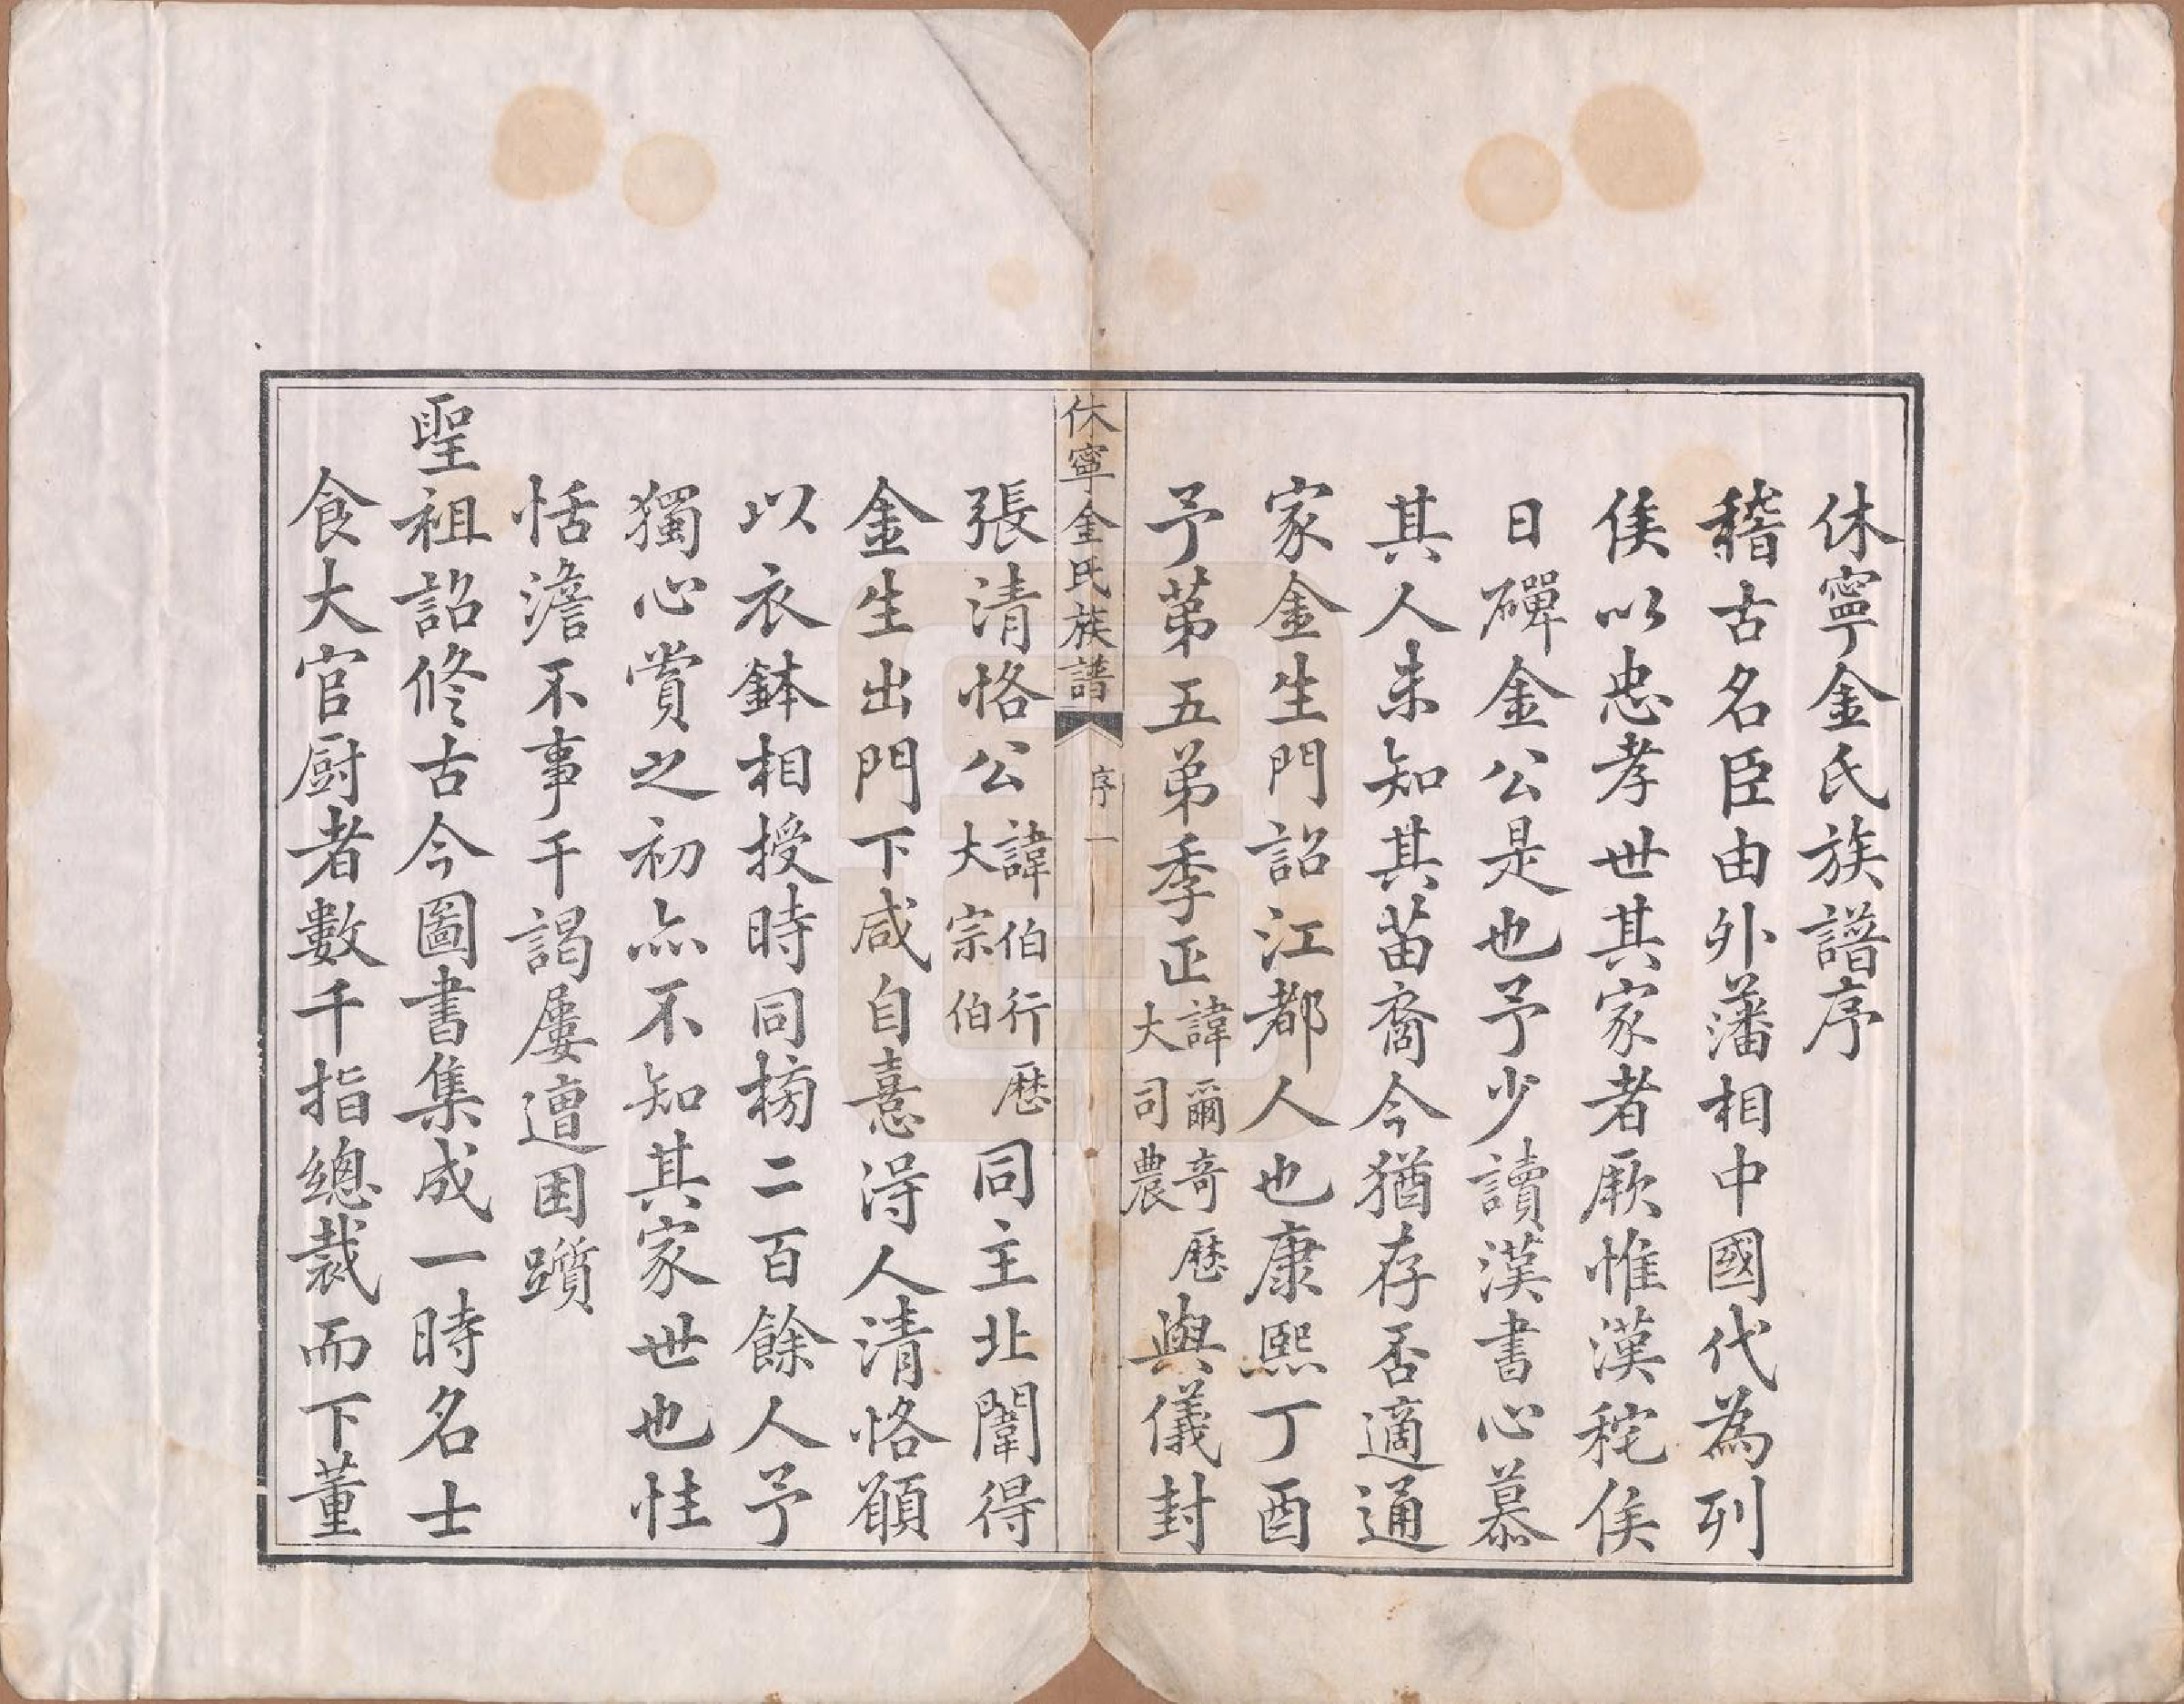 休寧金氏族譜序
稽古名臣由外藩相中國代為列
侯以忠孝世其家者厥惟漢秺侯
日磾金公是也予少讀漢書心慕
其人未知其苗裔今猶存否適通
家金生門詔江都人也康熙丁酉
予第五弟季正諱爾奇歷大司農與儀封
休寧金氏族譜 序 一
張清恪公諱伯行歷大宗伯同主北闈得
金生出門下咸自憙淂人清恪頋
以衣鉢相授時同榜二百餘人予
獨心賞之初亦不知其家世也性
恬澹不事干謁屢邅困躓
聖祖詔修古今圖書集成一時名士
食大官厨者數千指總裁而下董